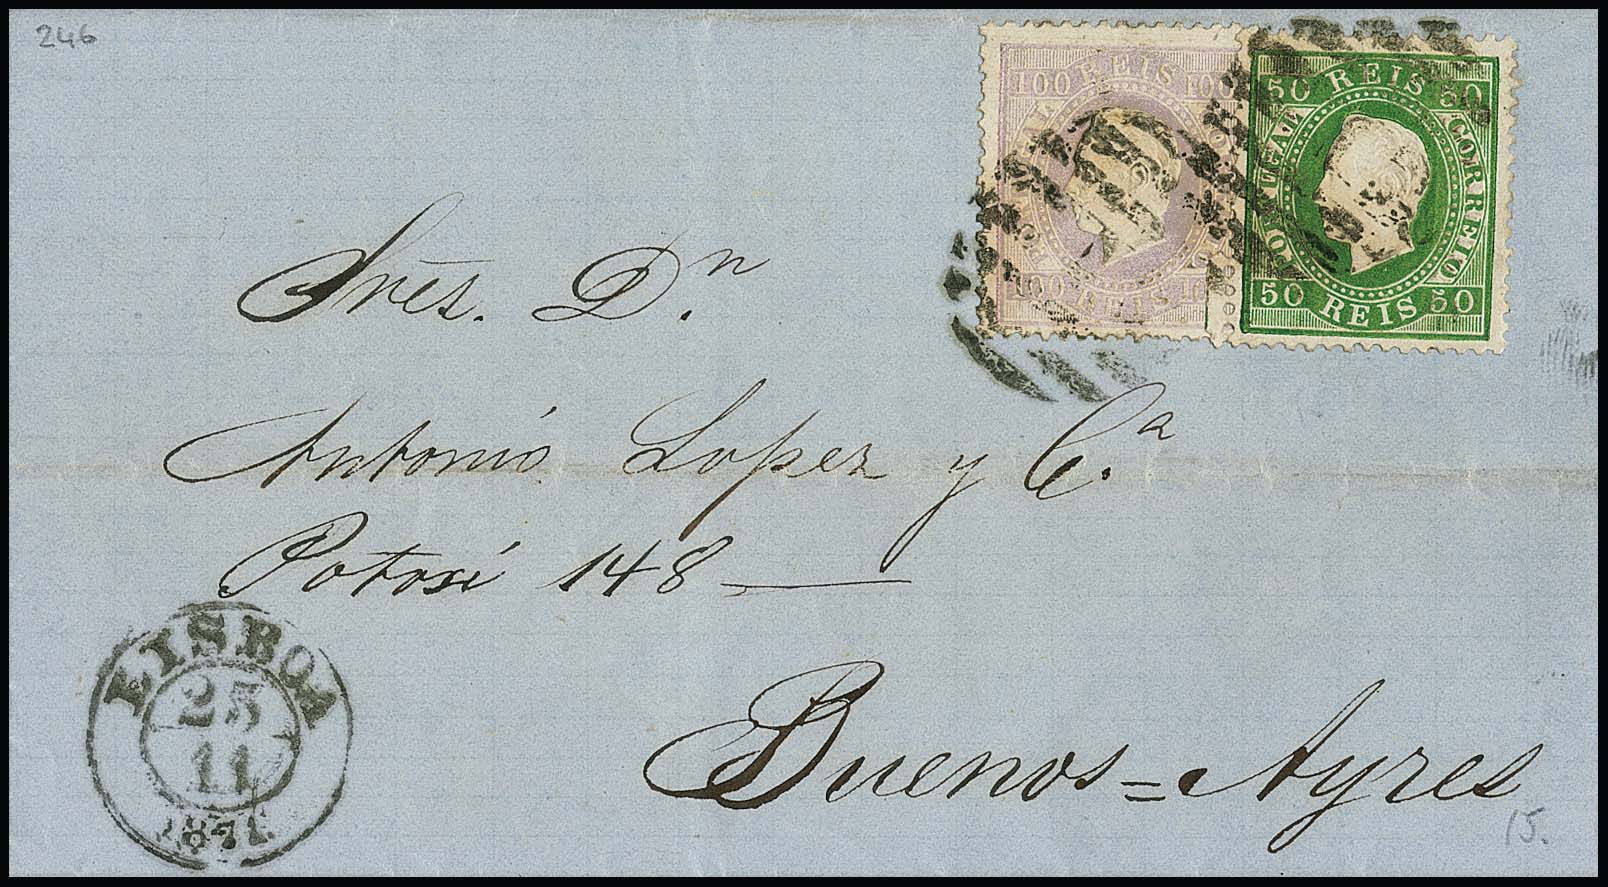 246
100 REIS 100
100 REIS
50 REIS 50
PORTUGAL
CORREIO
50 REIS 50
Sres. Dn.
Antonio Lopez y Ca.
Potosi 148
LISBOA
25
11
1871
Buenos=Ayres
15.